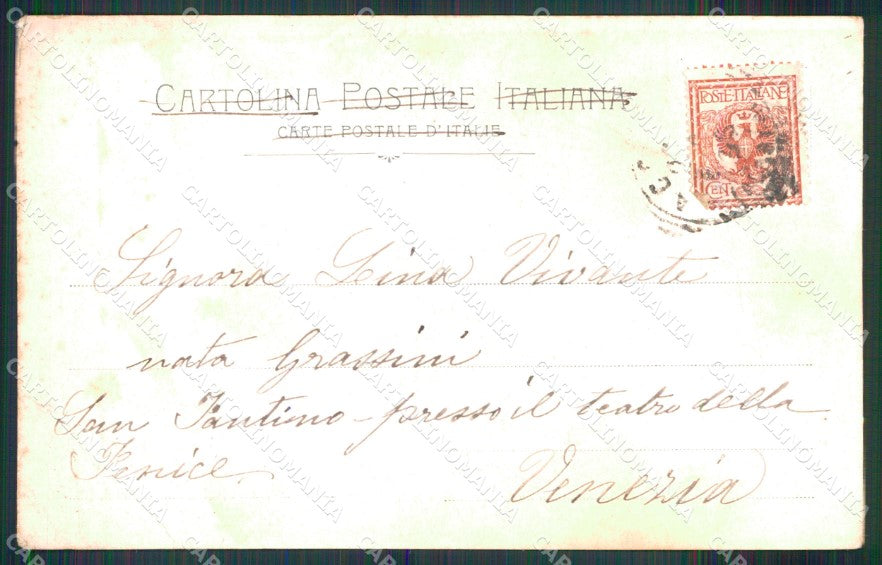 CARTOLINA POSTALE ITALIANA
CARTE POSTALE D'ITALIE
POSTE ITALIANE
CEN
Signora Lina Vivante
nata Grassini
San Fantino - presso il teatro della
Fenice
Venezia
CARTOLINOMANIA